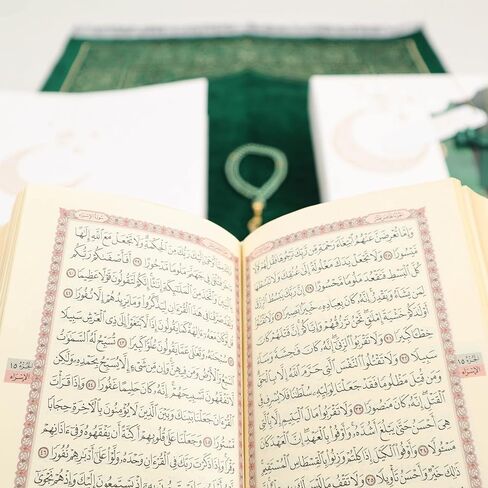 سُورَةُ الإِسْرَاءِ
وَإِمَّا تُعْرِضَنَّ عَنْهُمُ ٱبْتِغَآءَ رَحْمَةٍ مِّن رَّبِّكَ تَرْجُوهَا فَقُل لَّهُمْ قَوْلًا
مَّيْسُورًا ٢٨ وَلَا تَجْعَلْ يَدَكَ مَغْلُولَةً إِلَىٰ عُنُقِكَ وَلَا تَبْسُطْهَا
كُلَّ ٱلْبَسْطِ فَتَقْعُدَ مَلُومًا مَّحْسُورًا ٢٩ إِنَّ رَبَّكَ يَبْسُطُ ٱلرِّزْقَ
لِمَن يَشَآءُ وَيَقْدِرُ إِنَّهُۥ كَانَ بِعِبَادِهِۦ خَبِيرًۢا بَصِيرًا ٣٠ وَلَا تَقْتُلُوٓا۟
أَوْلَٰدَكُمْ خَشْيَةَ إِمْلَٰقٍ نَّحْنُ نَرْزُقُهُمْ وَإِيَّاكُمْ إِنَّ قَتْلَهُمْ كَانَ
خِطْـًٔا كَبِيرًا ٣١ وَلَا تَقْرَبُوا۟ ٱلزِّنَىٰٓ إِنَّهُۥ كَانَ فَٰحِشَةً وَسَآءَ
سَبِيلًا ٣٢ وَلَا تَقْتُلُوا۟ ٱلنَّفْسَ ٱلَّتِى حَرَّمَ ٱللَّهُ إِلَّا بِٱلْحَقِّ
وَمَن قُتِلَ مَظْلُومًا فَقَدْ جَعَلْنَا لِوَلِيِّهِۦ سُلْطَٰنًا فَلَا يُسْرِف فِّى
ٱلْقَتْلِ إِنَّهُۥ كَانَ مَنصُورًا ٣٣ وَلَا تَقْرَبُوا۟ مَالَ ٱلْيَتِيمِ إِلَّا بِٱلَّتِى
هِىَ أَحْسَنُ حَتَّىٰ يَبْلُغَ أَشُدَّهُۥ وَأَوْفُوا۟ بِٱلْعَهْدِ إِنَّ ٱلْعَهْدَ كَانَ
مَسْـُٔولًا ٣٤ وَأَوْفُوا۟ ٱلْكَيْلَ إِذَا كِلْتُمْ وَزِنُوا۟ بِٱلْقِسْطَاسِ ٱلْمُسْتَقِيمِ
ذَٰلِكَ خَيْرٌ وَأَحْسَنُ تَأْوِيلًا ٣٥
الجزء ١٥
الإسراء
سُورَةُ الإِسْرَاءِ
ذَٰلِكَ مِمَّآ أَوْحَىٰٓ إِلَيْكَ رَبُّكَ مِنَ ٱلْحِكْمَةِ وَلَا تَجْعَلْ مَعَ ٱللَّهِ إِلَٰهًا
ءَاخَرَ فَتُلْقَىٰ فِى جَهَنَّمَ مَلُومًا مَّدْحُورًا ٣٩ أَفَأَصْفَىٰكُمْ رَبُّكُم
بِٱلْبَنِينَ وَٱتَّخَذَ مِنَ ٱلْمَلَٰٓئِكَةِ إِنَٰثًا إِنَّكُمْ لَتَقُولُونَ قَوْلًا عَظِيمًا ٤٠
وَلَقَدْ صَرَّفْنَا فِى هَٰذَا ٱلْقُرْءَانِ لِيَذَّكَّرُوا۟ وَمَا يَزِيدُهُمْ إِلَّا نُفُورًا ٤١
قُل لَّوْ كَانَ مَعَهُۥٓ ءَالِهَةٌ كَمَا يَقُولُونَ إِذًا لَّٱبْتَغَوْا۟ إِلَىٰ ذِى ٱلْعَرْشِ سَبِيلًا
٤٢ سُبْحَٰنَهُۥ وَتَعَٰلَىٰ عَمَّا يَقُولُونَ عُلُوًّا كَبِيرًا ٤٣ تُسَبِّحُ لَهُ ٱلسَّمَٰوَٰتُ
ٱلسَّبْعُ وَٱلْأَرْضُ وَمَن فِيهِنَّ وَإِن مِّن شَىْءٍ إِلَّا يُسَبِّحُ بِحَمْدِهِۦ وَلَٰكِن
لَّا تَفْقَهُونَ تَسْبِيحَهُمْ إِنَّهُۥ كَانَ حَلِيمًا غَفُورًا ٤٤ وَإِذَا قَرَأْتَ
ٱلْقُرْءَانَ جَعَلْنَا بَيْنَكَ وَبَيْنَ ٱلَّذِينَ لَا يُؤْمِنُونَ بِٱلْءَاخِرَةِ حِجَابًا
مَّسْتُورًا ٤٥ وَجَعَلْنَا عَلَىٰ قُلُوبِهِمْ أَكِنَّةً أَن يَفْقَهُوهُ وَفِىٓ ءَاذَانِهِمْ
وَقْرًا وَإِذَا ذَكَرْتَ رَبَّكَ فِى ٱلْقُرْءَانِ وَحْدَهُۥ وَلَّوْا۟ عَلَىٰٓ أَدْبَٰرِهِمْ نُفُورًا ٤٦
نَّحْنُ أَعْلَمُ بِمَا يَسْتَمِعُونَ بِهِۦٓ إِذْ يَسْتَمِعُونَ إِلَيْكَ وَإِذْ هُمْ نَجْوَىٰٓ
الجزء ١٥
الإسراء